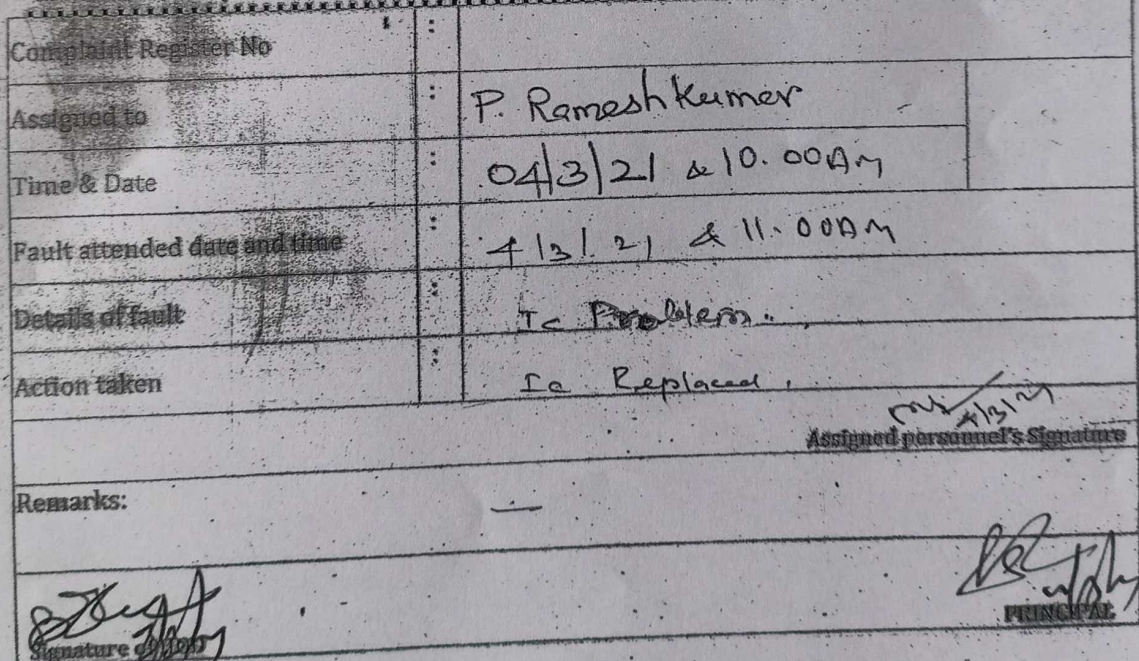 Complaint Register No :
Assigned to : P. Rameshkumar
Time & Date : 04/3/21 & 10.00AM
Fault attended date and time : 4/3/21 & 11.00AM
Details of fault : Ic Problem.
Action taken : Ic Replaced.
4/3/21
Assigned personnel's Signature
Remarks: —
PRINCIPAL
Signature of